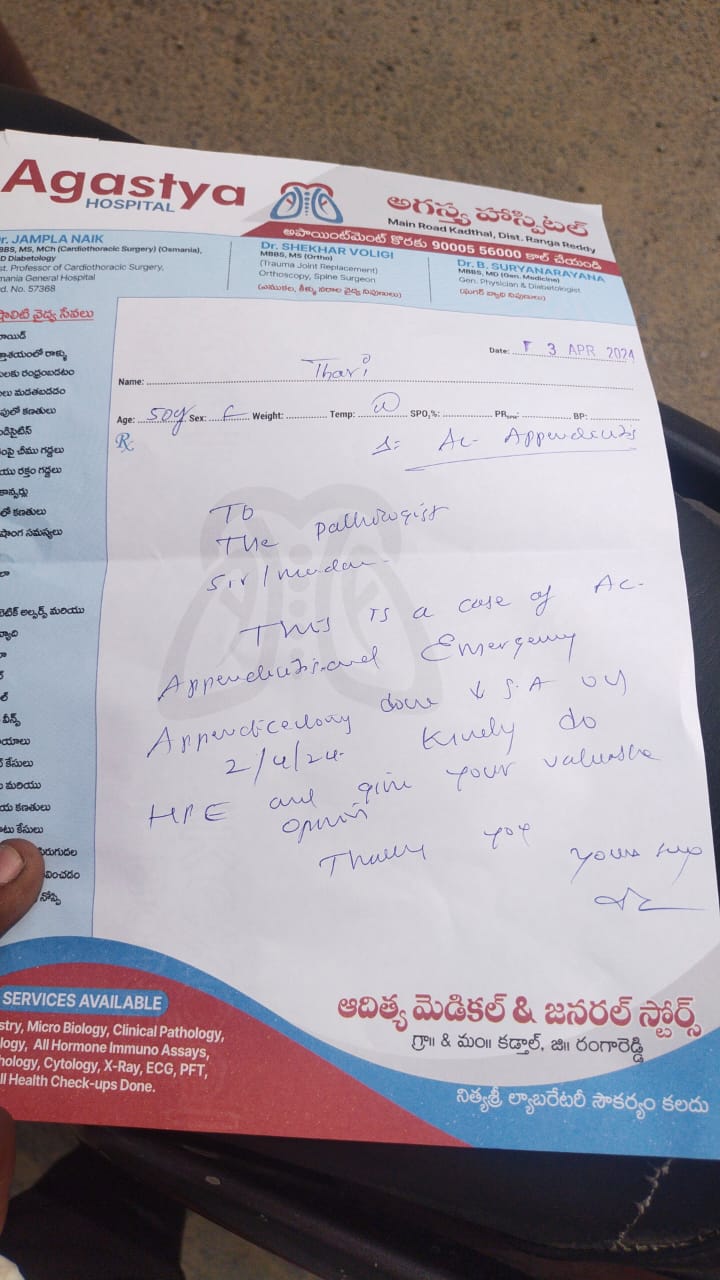 Agastya
HOSPITAL
అగస్త్య హాస్పిటల్
Main Road Kadthal, Dist. Ranga Reddy
అపాయింట్‌మెంట్ కొరకు 90005 56000 కాల్ చేయండి
r. JAMPLA NAIK
BBS, MS, MCh (Cardiothoracic Surgery) (Osmania),
D Diabetology
st. Professor of Cardiothoracic Surgery,
mania General Hospital
d. No. 57368
Dr. SHEKHAR VOLIGI
MBBS, MS (Ortho)
(Trauma Joint Replacement)
Orthoscopy, Spine Surgeon
(ఎముకలు, కీళ్ళు నరాల వైద్య నిపుణులు)
Dr. B. SURYANARAYANA
MBBS, MD (Gen. Medicine)
Gen. Physician & Diabetologist
(షుగర్ వ్యాధి నిపుణులు)
షాలిటి వైద్య సేవలు
రాయిడ్
త్తాశయంలో రాళ్ళు
లకు రంధ్రంబడటం
లు మడతబడడం
పులో కణతులు
డిసైటిస్
ంపై చీము గడ్డలు
యు రక్తం గడ్డలు
కాన్సర్లు
లో కణతులు
షాంగ సమస్యలు
లా
టిక్ అల్సర్స్ మరియు
వ్యాధి
ల్
వీన్స్
యాలు
్ కేసులు
మరియు
య కణతులు
టు కేసులు
పెరుగుదల
వించడం
నోప్సి
Date: 3 APR 2024
Name: Thari
Age: 50y Sex: F Weight: Temp: SPO2%: PR BP:
Rx
Δ= Ac- Appendicitis
To
The pathologist
Sir/madam-
This is a case of Ac-
Appendicitis and Emergency
Appendicectomy done ↓ S.A on
2/4/24. Kindly do
HPE and give your valuable
opinion
Thanking you
yours
SERVICES AVAILABLE
stry, Micro Biology, Clinical Pathology,
logy, All Hormone Immuno Assays,
hology, Cytology, X-Ray, ECG, PFT,
ll Health Check-ups Done.
ఆదిత్య మెడికల్ & జనరల్ స్టోర్స్
గ్రా॥ & మం॥ కడ్తాల్, జి॥ రంగారెడ్డి
నిత్యశ్రీ ల్యాబరేటరీ సౌకర్యం కలదు